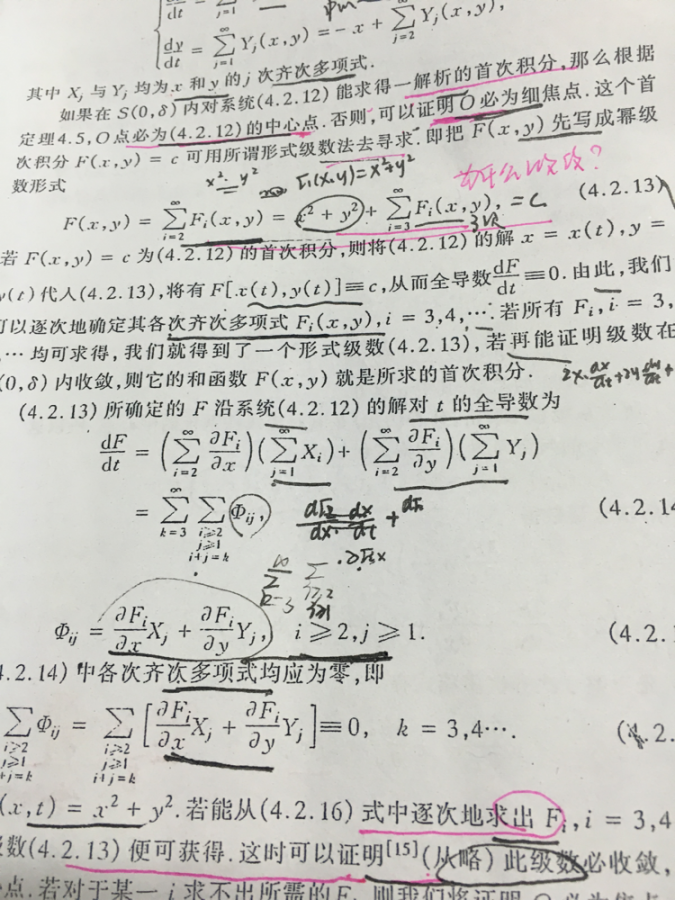 dt j=1
dy/dt = ∑_{j=1}^{∞} Y_j(x,y) = -x + ∑_{j=2}^{∞} Y_j(x,y),
其中 X_j 与 Y_j 均为 x 和 y 的 j 次齐次多项式.
如果在 S(0,δ) 内对系统(4.2.12) 能求得一解析的首次积分,那么根据
定理4.5,O点必为(4.2.12)的中心点.否则,可以证明 O 必为细焦点.这个首
次积分 F(x,y) = c 可用所谓形式级数法去寻求.即把 F(x,y) 先写成幂级
数形式
x² y² F_i(x,y)=x²+y²
(4.2.13)
F(x,y) = ∑_{i=2}^{∞} F_i(x,y) = x² + y² + ∑_{i=3}^{∞} F_i(x,y), = C
若 F(x,y) = c 为(4.2.12)的首次积分,则将(4.2.12)的解 x = x(t),y =
y(t) 代入(4.2.13),将有 F[x(t),y(t)]≡c,从而全导数 dF/dt ≡0.由此,我们
可以逐次地确定其各次齐次多项式 F_i(x,y),i = 3,4,….若所有 F_i,i = 3,
… 均可求得,我们就得到了一个形式级数(4.2.13),若再能证明级数在
(0,δ) 内收敛,则它的和函数 F(x,y) 就是所求的首次积分.
2x·dx/dt+2y dy/dt+
(4.2.13) 所确定的 F 沿系统(4.2.12) 的解对 t 的全导数为
dF/dt = (∑_{i=2}^{∞} ∂F_i/∂x)(∑_{j=1}^{∞} X_j)+ (∑_{i=2}^{∞} ∂F_i/∂y)(∑_{j=1}^{∞} Y_j)
= ∑_{k=3}^{∞} ∑_{i≥2, j≥1, i+j=k} Φ_{ij}, (4.2.14
Φ_{ij} = ∂F_i/∂x X_j + ∂F_i/∂y Y_j, i ≥ 2,j ≥ 1. (4.2.
4.2.14) 中各次齐次多项式均应为零,即
∑_{i≥2, j≥1, i+j=k} Φ_{ij} = ∑_{i≥2, j≥1, i+j=k} [∂F_i/∂x X_j + ∂F_i/∂y Y_j]≡0, k = 3,4…. (4.2.
(x,t) = x² + y².若能从(4.2.16) 式中逐次地求出 F_i,i = 3,4
级数(4.2.13) 便可获得.这时可以证明[15](从略) 此级数必收敛,
点.若对于某一 i 求不出所需的 F_i 则我们将证明 O 必为焦点